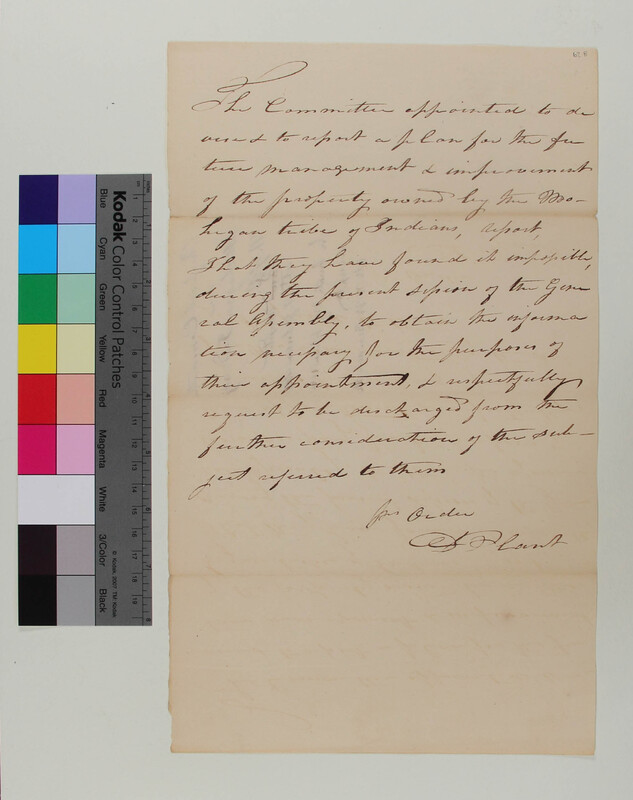 The Committee appointed to de
vise & to report a plan for the fu
ture management & improvement
of the property owned by the Mo-
hegan tribe of Indians, report,
That they have found it impossible,
during the present session of the Gene
ral Assembly, to obtain the informa
tion necessary for the purposes of
their appointment, & respectfully
request to be discharged from the
further consideration of the sub-
ject referred to them
pr Order
D Plant
Kodak Color Control Patches
Blue
Cyan
Green
Yellow
Red
Magenta
White
3/Color
Black
© Kodak, 2007 TM: Kodak